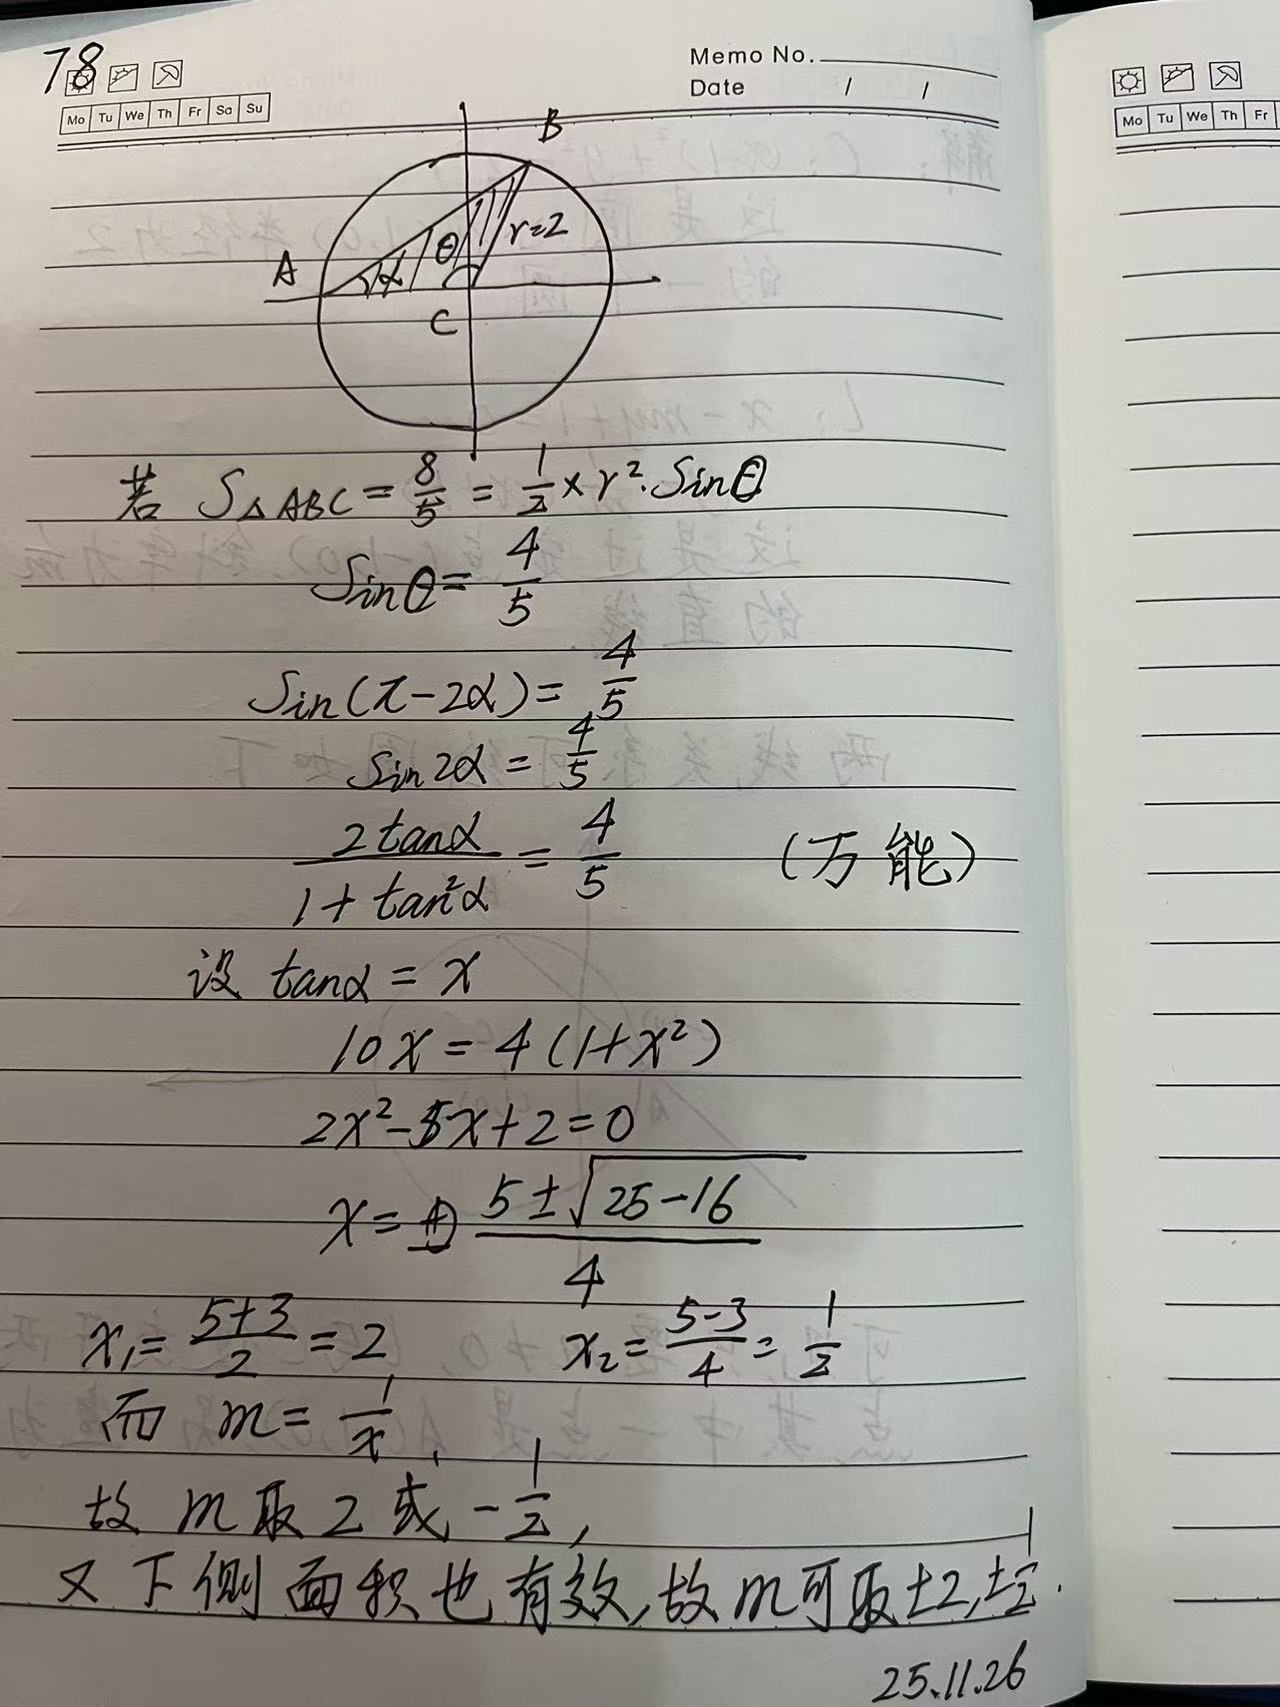 78
Memo No.
Date / /
Mo Tu We Th Fr Sa Su
Mo Tu We Th Fr
B
A
α
θ
r=2
C
若 S△ABC = 8/5 = 1/2 × r²·Sinθ
Sinθ = 4/5
Sin(π-2α) = 4/5
Sin2α = 4/5
2tanα/(1+tan²α) = 4/5 (万能)
设 tanα = x
10x = 4(1+x²)
2x²-5x+2=0
x = (5±√(25-16))/4
x₁ = (5+3)/2 = 2 x₂ = (5-3)/4 = 1/2
而 m = 1/x,
故 m 取 2 或 -1/2,
又下侧面积也有效,故m可取±2,±1/2.
25.11.26